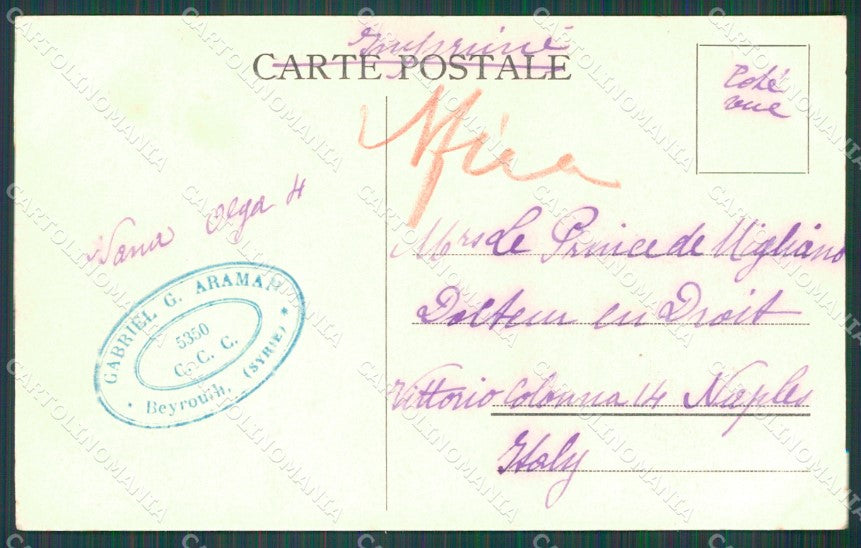 Imprimé
CARTE POSTALE
Coté
vue
Nana Olga 4
GABRIEL G. ARAMAN
5350
C. C. C.
Beyrouth. (SYRIE)
Mrs Le Prince de Migliano
Docteur en Droit
Vittorio Colonna 14 Naples
Italy
CARTOLINOMANIA